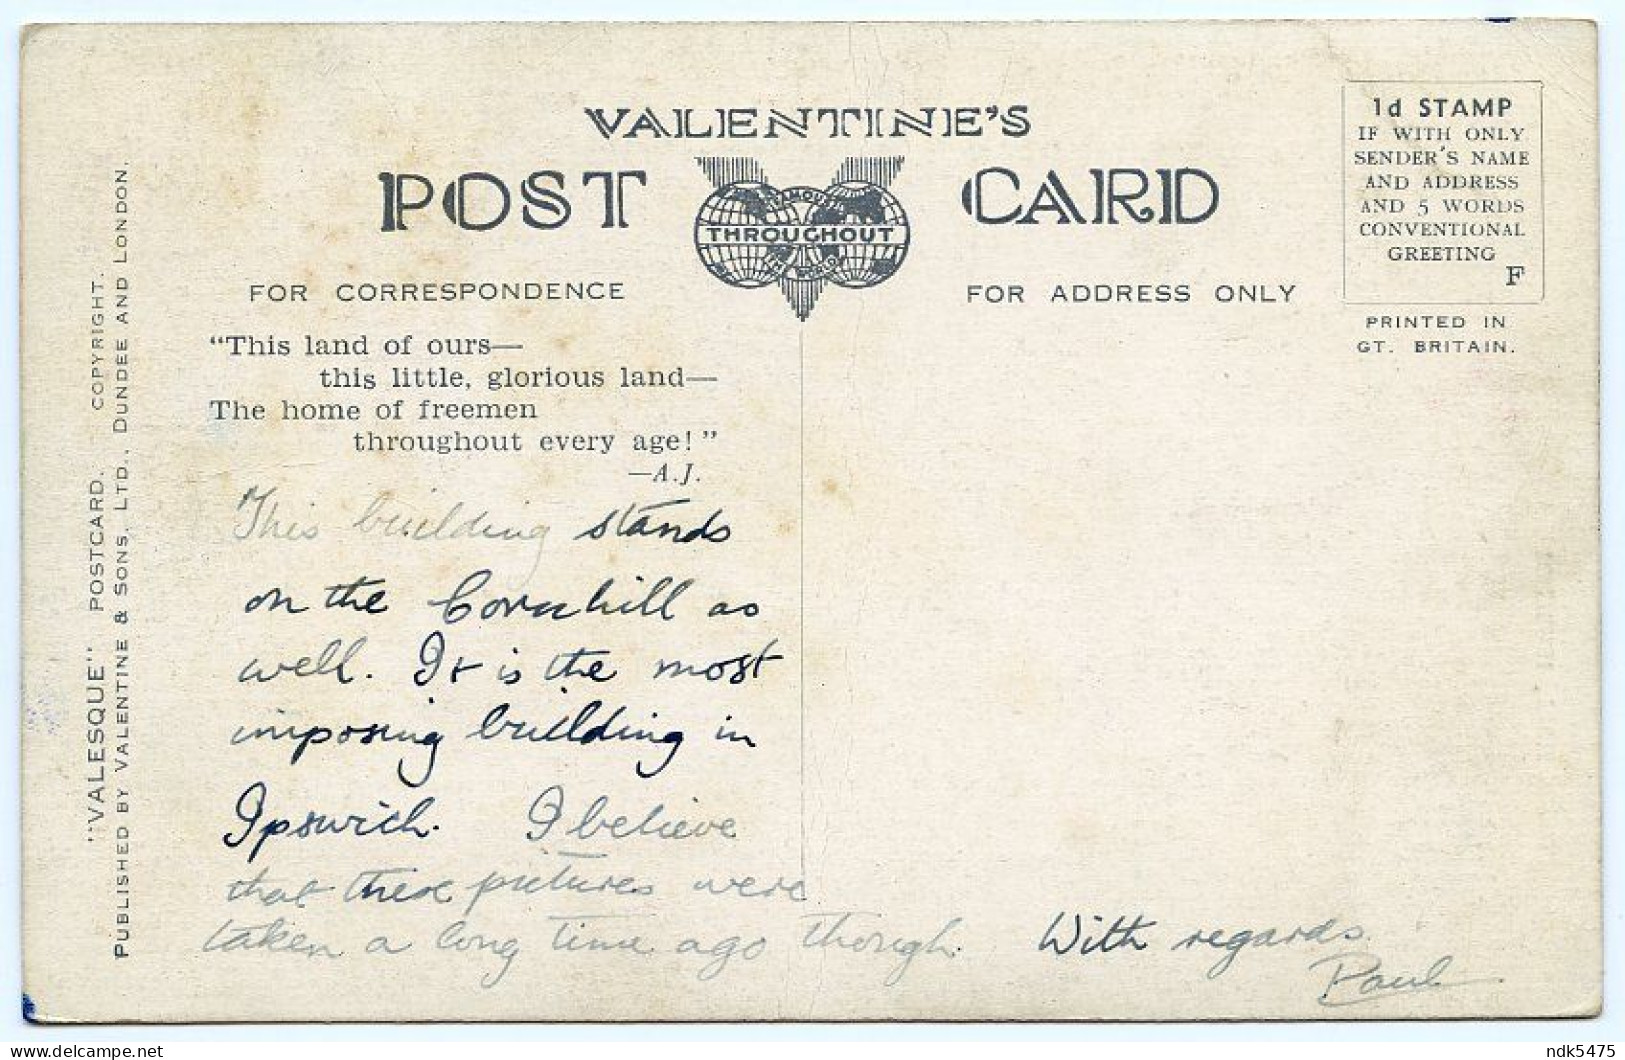 VALENTINE'S
POST CARD
FAMOUS
THROUGHOUT
THE WORLD
FOR CORRESPONDENCE
FOR ADDRESS ONLY
1d STAMP
IF WITH ONLY
SENDER'S NAME
AND ADDRESS
AND 5 WORDS
CONVENTIONAL
GREETING
F
PRINTED IN
GT. BRITAIN.
"This land of ours—
this little, glorious land—
The home of freemen
throughout every age!"
—A.J.
This building stands
on the Cornhill as
well. It is the most
imposing building in
Ipswich. I believe
that these pictures were
taken a long time ago though.
With regards
Paul
"VALESQUE" POSTCARD. COPYRIGHT.
PUBLISHED BY VALENTINE & SONS, LTD., DUNDEE AND LONDON.
delcampe.net
ndk5475